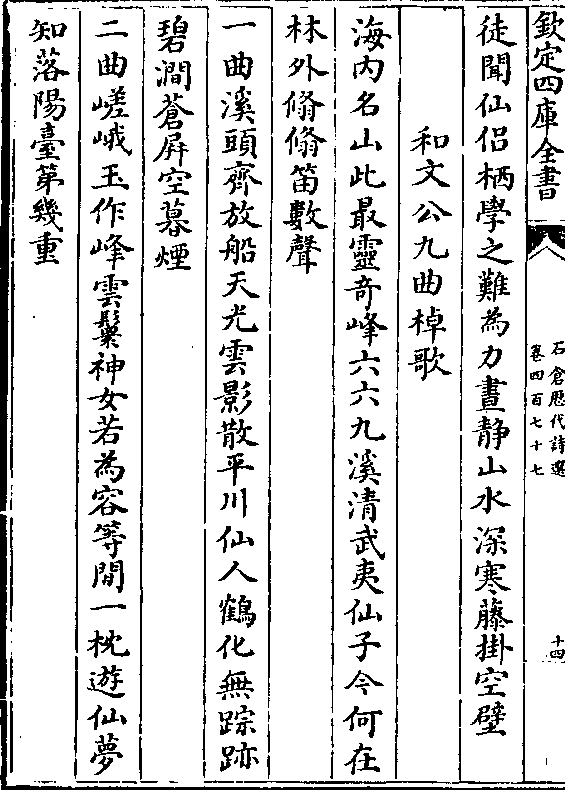 欽定四庫全書
石倉歷代詩選
卷四百七十七
十四
徒聞仙侣栖學之難為力晝静山水深寒藤掛空壁
和文公九曲棹歌
海内名山此最靈竒峰六六九溪清武夷仙子今何在
林外翛翛笛數聲
一曲溪頭齊放船天光雲影散平川仙人鶴化無踪跡
碧澗蒼屏空暮煙
二曲嵯峨玉作峰雲鬟神女若為容等閒一枕遊仙夢
知落陽臺第幾重